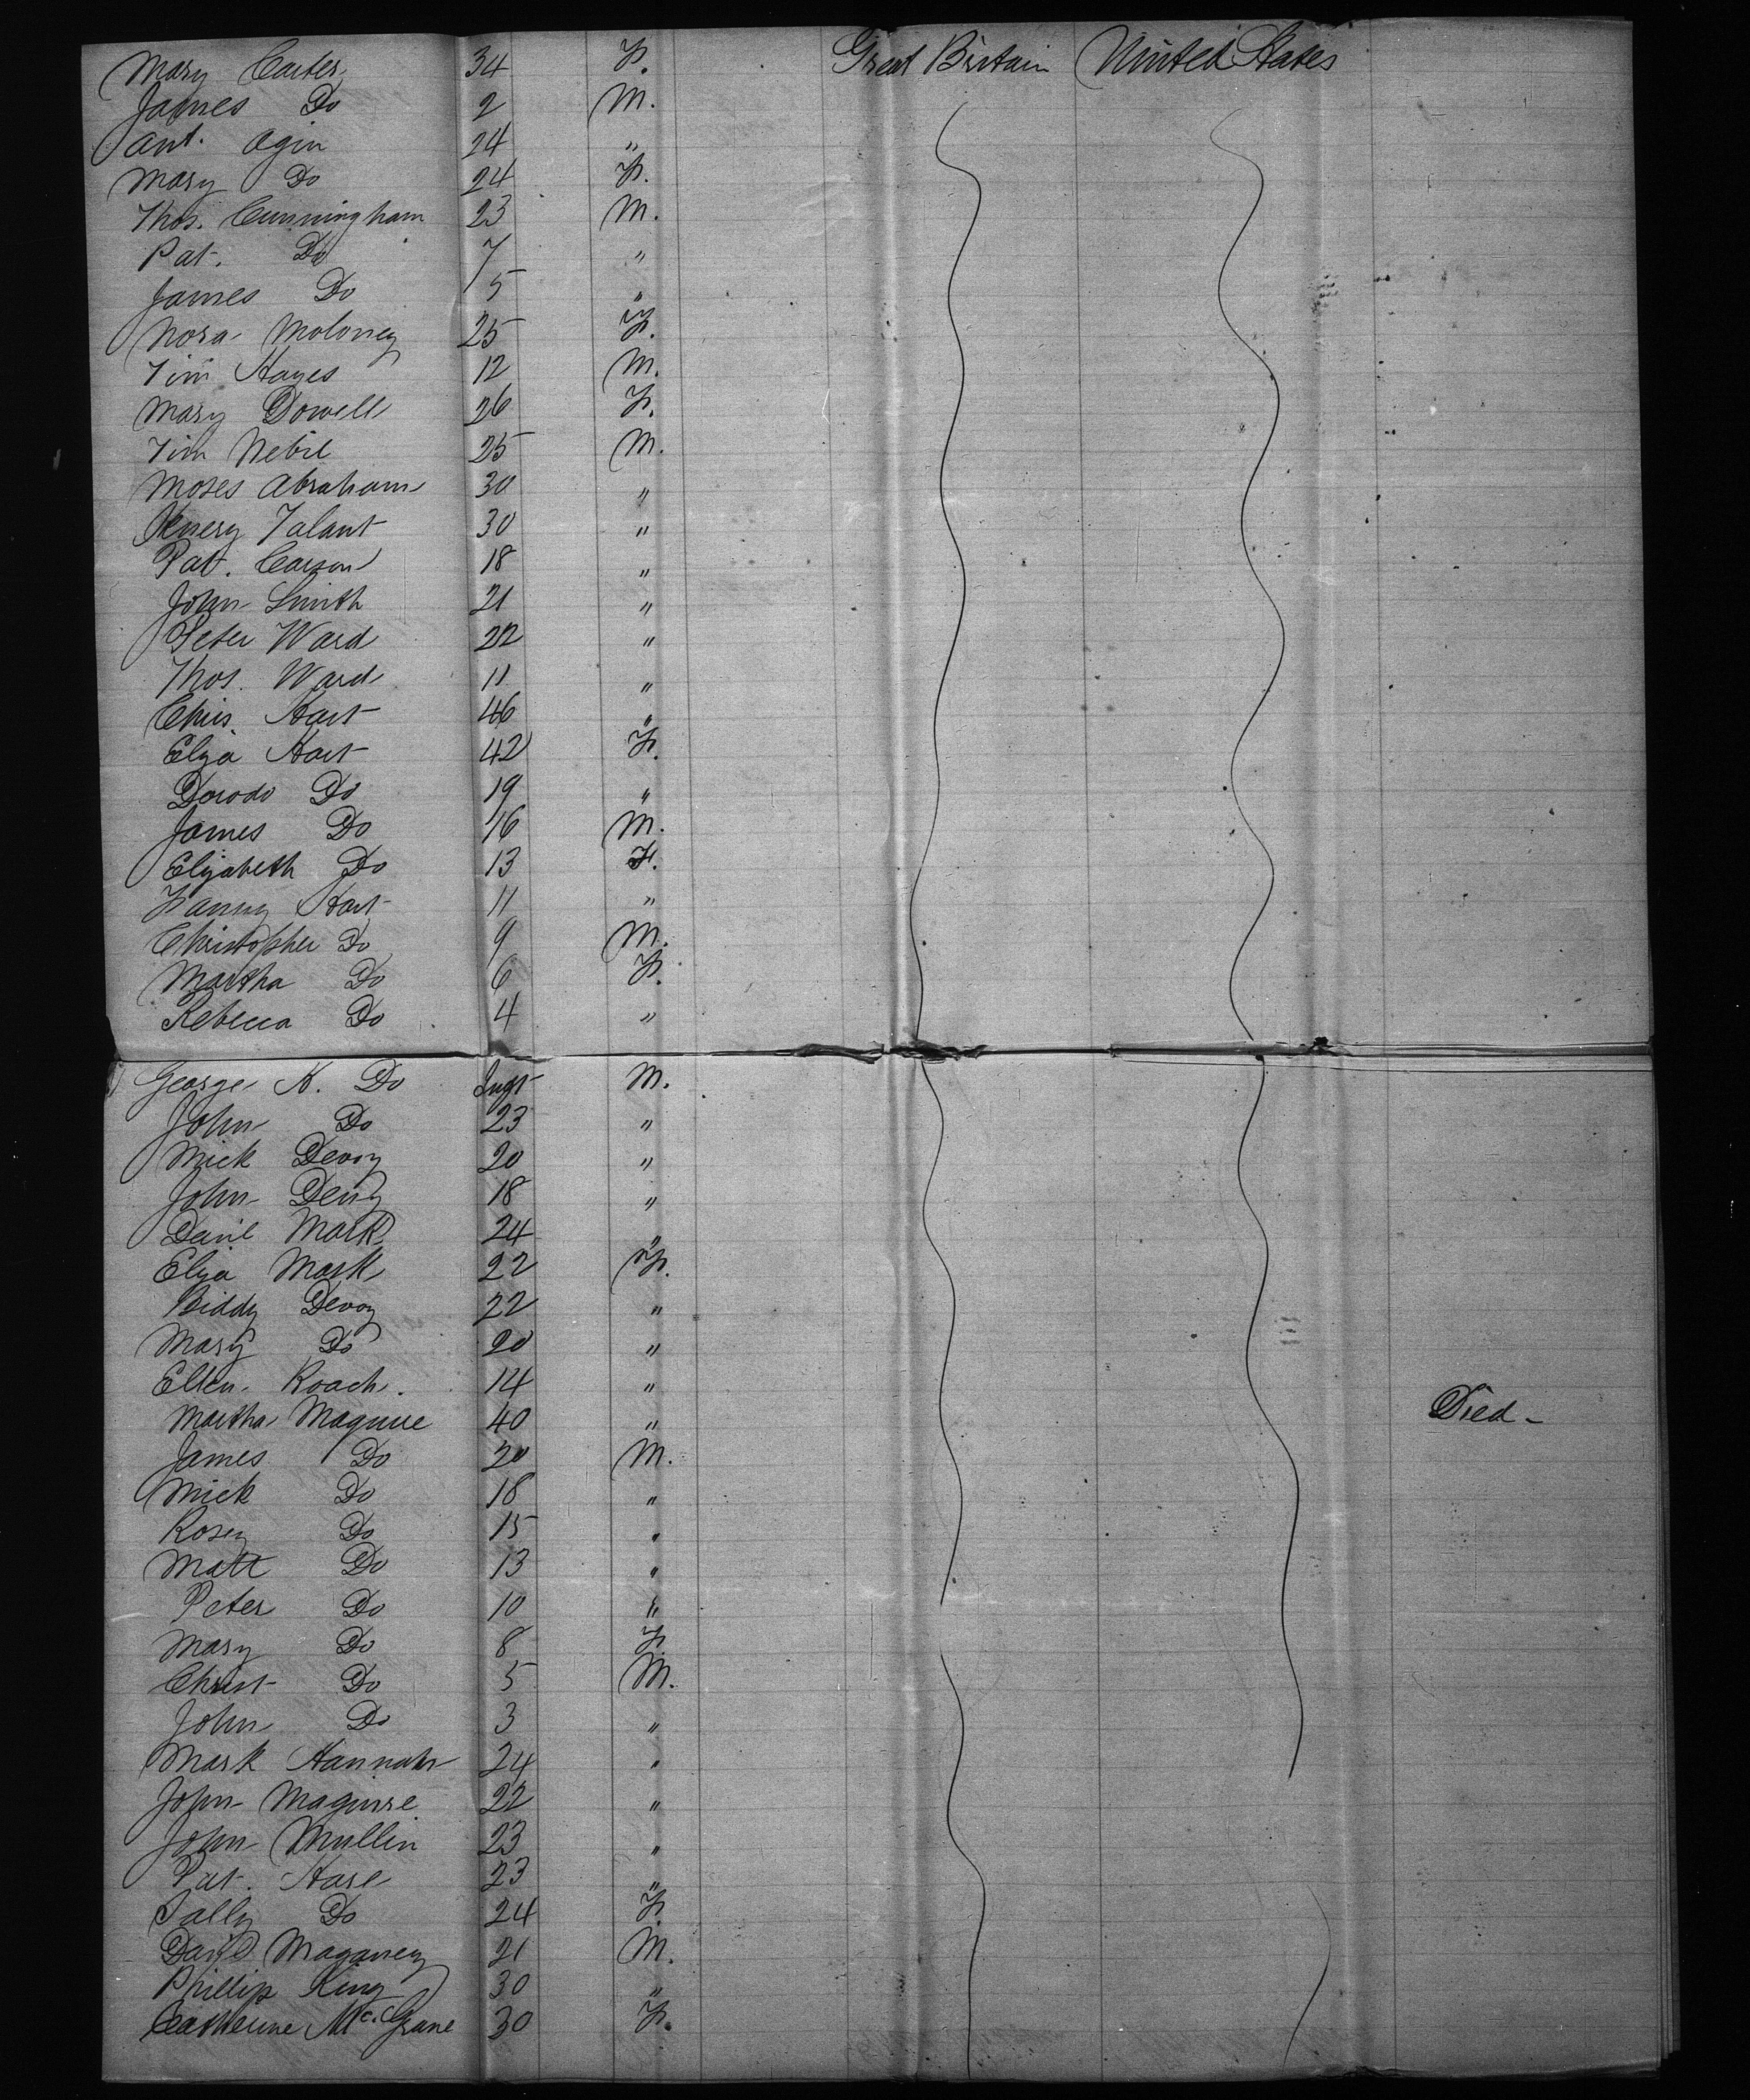 Mary Carter 34 F. Great Britain United States
James Do 2 M.
Ant. Agin 24 "
Mary Do 24 F.
Thos. Cunningham 23 M.
Pat. Do 7 "
James Do 5 "
Nora Moloney 25 F.
Tim Hayes 12 M.
Mary Dowell 26 F.
Tim Nebil 25 M.
Moses Abraham 30 "
Henery Talant 30 "
Pat. Carson 18 "
John Smith 21 "
Peter Ward 22 "
Thos. Ward 11 "
Chris. Hart 46 "
Eliza Hart 42 F.
Dorodo Do 19 "
James Do 16 M.
Elizabeth Do 13 F.
Fanny Hart 11 "
Christopher Do 9 M.
Martha Do 6 F.
Rebecca Do 4 "
George H. Do Inft M.
John Do 23 "
Mick Devoy 20 "
John 18 "
Mark 24 "
Eliza Mark 22 F.
Biddy Devoy 22 "
Mary Do 20 "
Ellen Roach. 14 "
Martha Maguire 40 " Died -
James Do 20 M.
Mick Do 18 "
Rosey Do 15 "
Matt Do 13 "
Peter Do 10 "
Mary Do 8 F.
Christ Do 5 M.
John Do 3 "
Mark Hannah 24 "
John Maguire 22 "
John Mullin 23 "
Pat. Hare 23 "
Sally Do 24 F.
David Maganey 21 M.
Phillip King 30 "
Catherine McGrane 30 F.